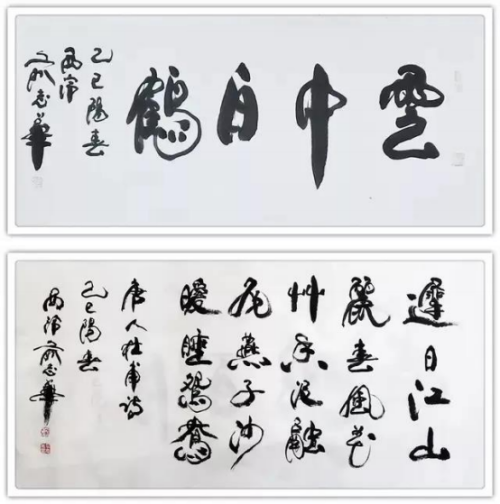 雲中白鶴
乙巳陽春
志華
遲日江山
麗春風花
艸香泥融
飛燕子沙
暖睡鴛鴦
唐人杜甫詩
乙巳陽春
志華